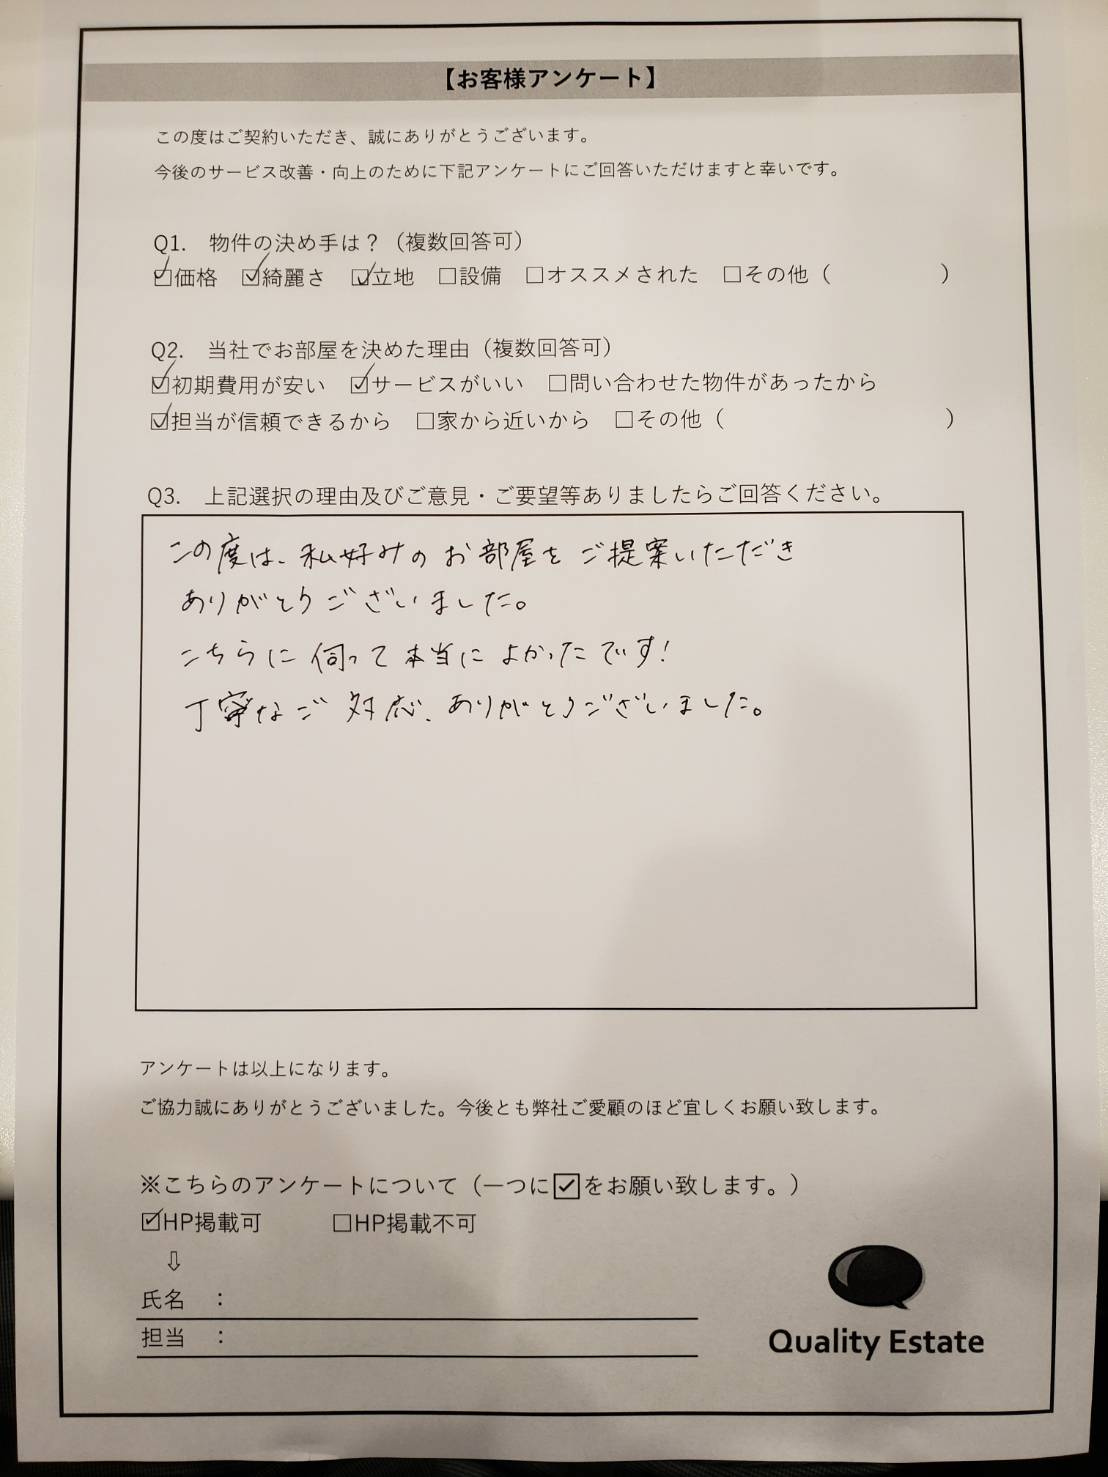 【お客様アンケート】
この度はご契約いただき、誠にありがとうございます。
今後のサービス改善・向上のために下記アンケートにご回答いただけますと幸いです。
Q1. 物件の決め手は？（複数回答可）
☑価格 ☑綺麗さ ☑立地 □設備 □オススメされた □その他（ ）
Q2. 当社でお部屋を決めた理由（複数回答可）
☑初期費用が安い ☑サービスがいい □問い合わせた物件があったから
☑担当が信頼できるから □家から近いから □その他（ ）
Q3. 上記選択の理由及びご意見・ご要望等ありましたらご回答ください。
この度は、私好みのお部屋をご提案いただき
ありがとうございました。
こちらに伺って本当によかったです！
丁寧なご対応、ありがとうございました。
アンケートは以上になります。
ご協力誠にありがとうございました。今後とも弊社ご愛顧のほど宜しくお願い致します。
※こちらのアンケートについて（一つに☑をお願い致します。）
☑HP掲載可 □HP掲載不可
⇩
氏名 ：
担当 ：
Quality Estate